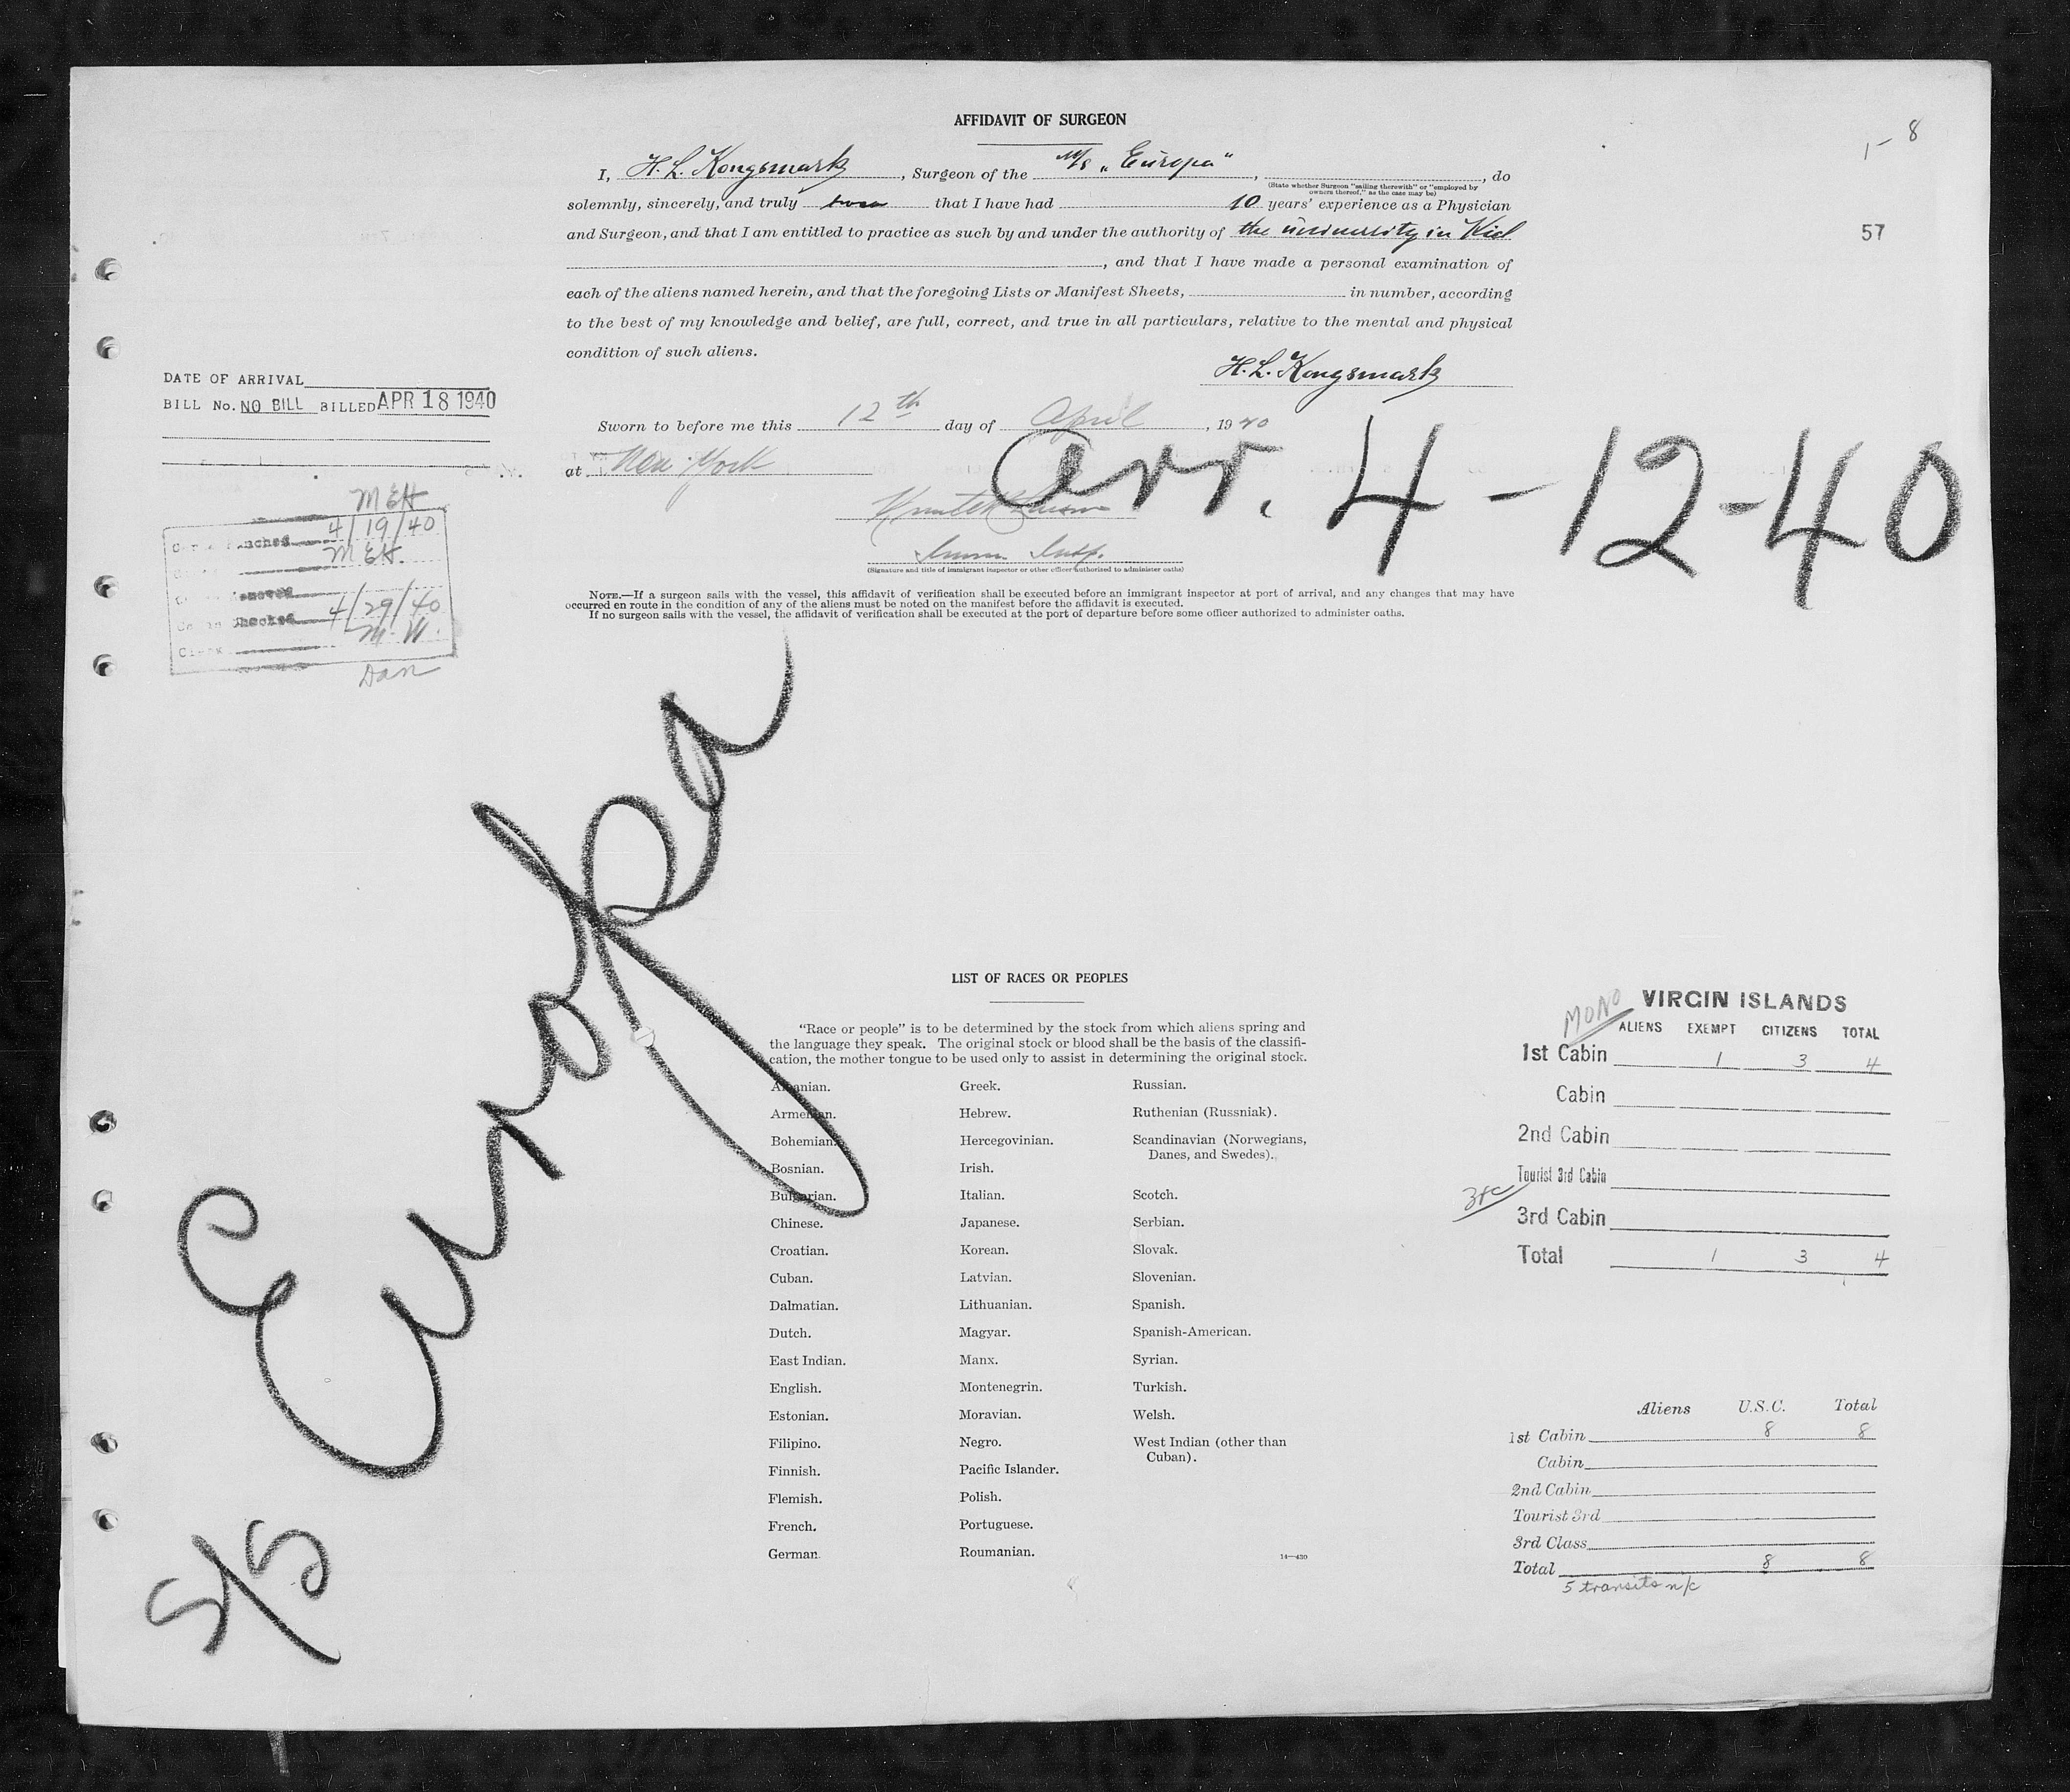 AFFIDAVIT OF SURGEON
I, H. L. Kongsmark, Surgeon of the M/S „Europa", , do
(State whether Surgeon "sailing therewith" or "employed by owners thereof," as the case may be)
solemnly, sincerely, and truly that I have had 10 years' experience as a Physician
and Surgeon, and that I am entitled to practice as such by and under the authority of the university in Kiel
, and that I have made a personal examination of
each of the aliens named herein, and that the foregoing Lists or Manifest Sheets, in number, according
to the best of my knowledge and belief, are full, correct, and true in all particulars, relative to the mental and physical
condition of such aliens.
H. L. Kongsmark
Sworn to before me this 12th day of April, 1940
at New York
Immn. Insp.
(Signature and title of immigrant inspector or other officer authorized to administer oaths)
NOTE.—If a surgeon sails with the vessel, this affidavit of verification shall be executed before an immigrant inspector at port of arrival, and any changes that may have
occurred en route in the condition of any of the aliens must be noted on the manifest before the affidavit is executed.
If no surgeon sails with the vessel, the affidavit of verification shall be executed at the port of departure before some officer authorized to administer oaths.
1-8
57
Arr. 4-12-40
DATE OF ARRIVAL
BILL No. NO BILL BILLED APR 18 1940
MEH
4/19/40
MEH.
4/29/40
M.W.
Dan
S/S Europa
LIST OF RACES OR PEOPLES
"Race or people" is to be determined by the stock from which aliens spring and
the language they speak. The original stock or blood shall be the basis of the classifi-
cation, the mother tongue to be used only to assist in determining the original stock.
Albanian. Greek. Russian.
Armenian. Hebrew. Ruthenian (Russniak).
Bohemian. Hercegovinian. Scandinavian (Norwegians,
Danes, and Swedes).
Bosnian. Irish.
Bulgarian. Italian. Scotch.
Chinese. Japanese. Serbian.
Croatian. Korean. Slovak.
Cuban. Latvian. Slovenian.
Dalmatian. Lithuanian. Spanish.
Dutch. Magyar. Spanish-American.
East Indian. Manx. Syrian.
English. Montenegrin. Turkish.
Estonian. Moravian. Welsh.
Filipino. Negro. West Indian (other than
Cuban).
Finnish. Pacific Islander.
Flemish. Polish.
French. Portuguese.
German. Roumanian.
14—430
MONO
VIRGIN ISLANDS
ALIENS EXEMPT CITIZENS TOTAL
1st Cabin 1 3 4
Cabin
2nd Cabin
Tourist 3rd Cabin
3rd Cabin
Total 1 3 4
Aliens U.S.C. Total
1st Cabin 8 8
Cabin
2nd Cabin
Tourist 3rd
3rd Class
Total 8 8
5 transits n/c